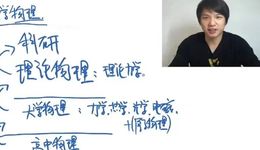 学物理
科研
理论物理：理论力学。
大学物理：力学，热学，光学，电磁，
+(原子物理)
高中物理